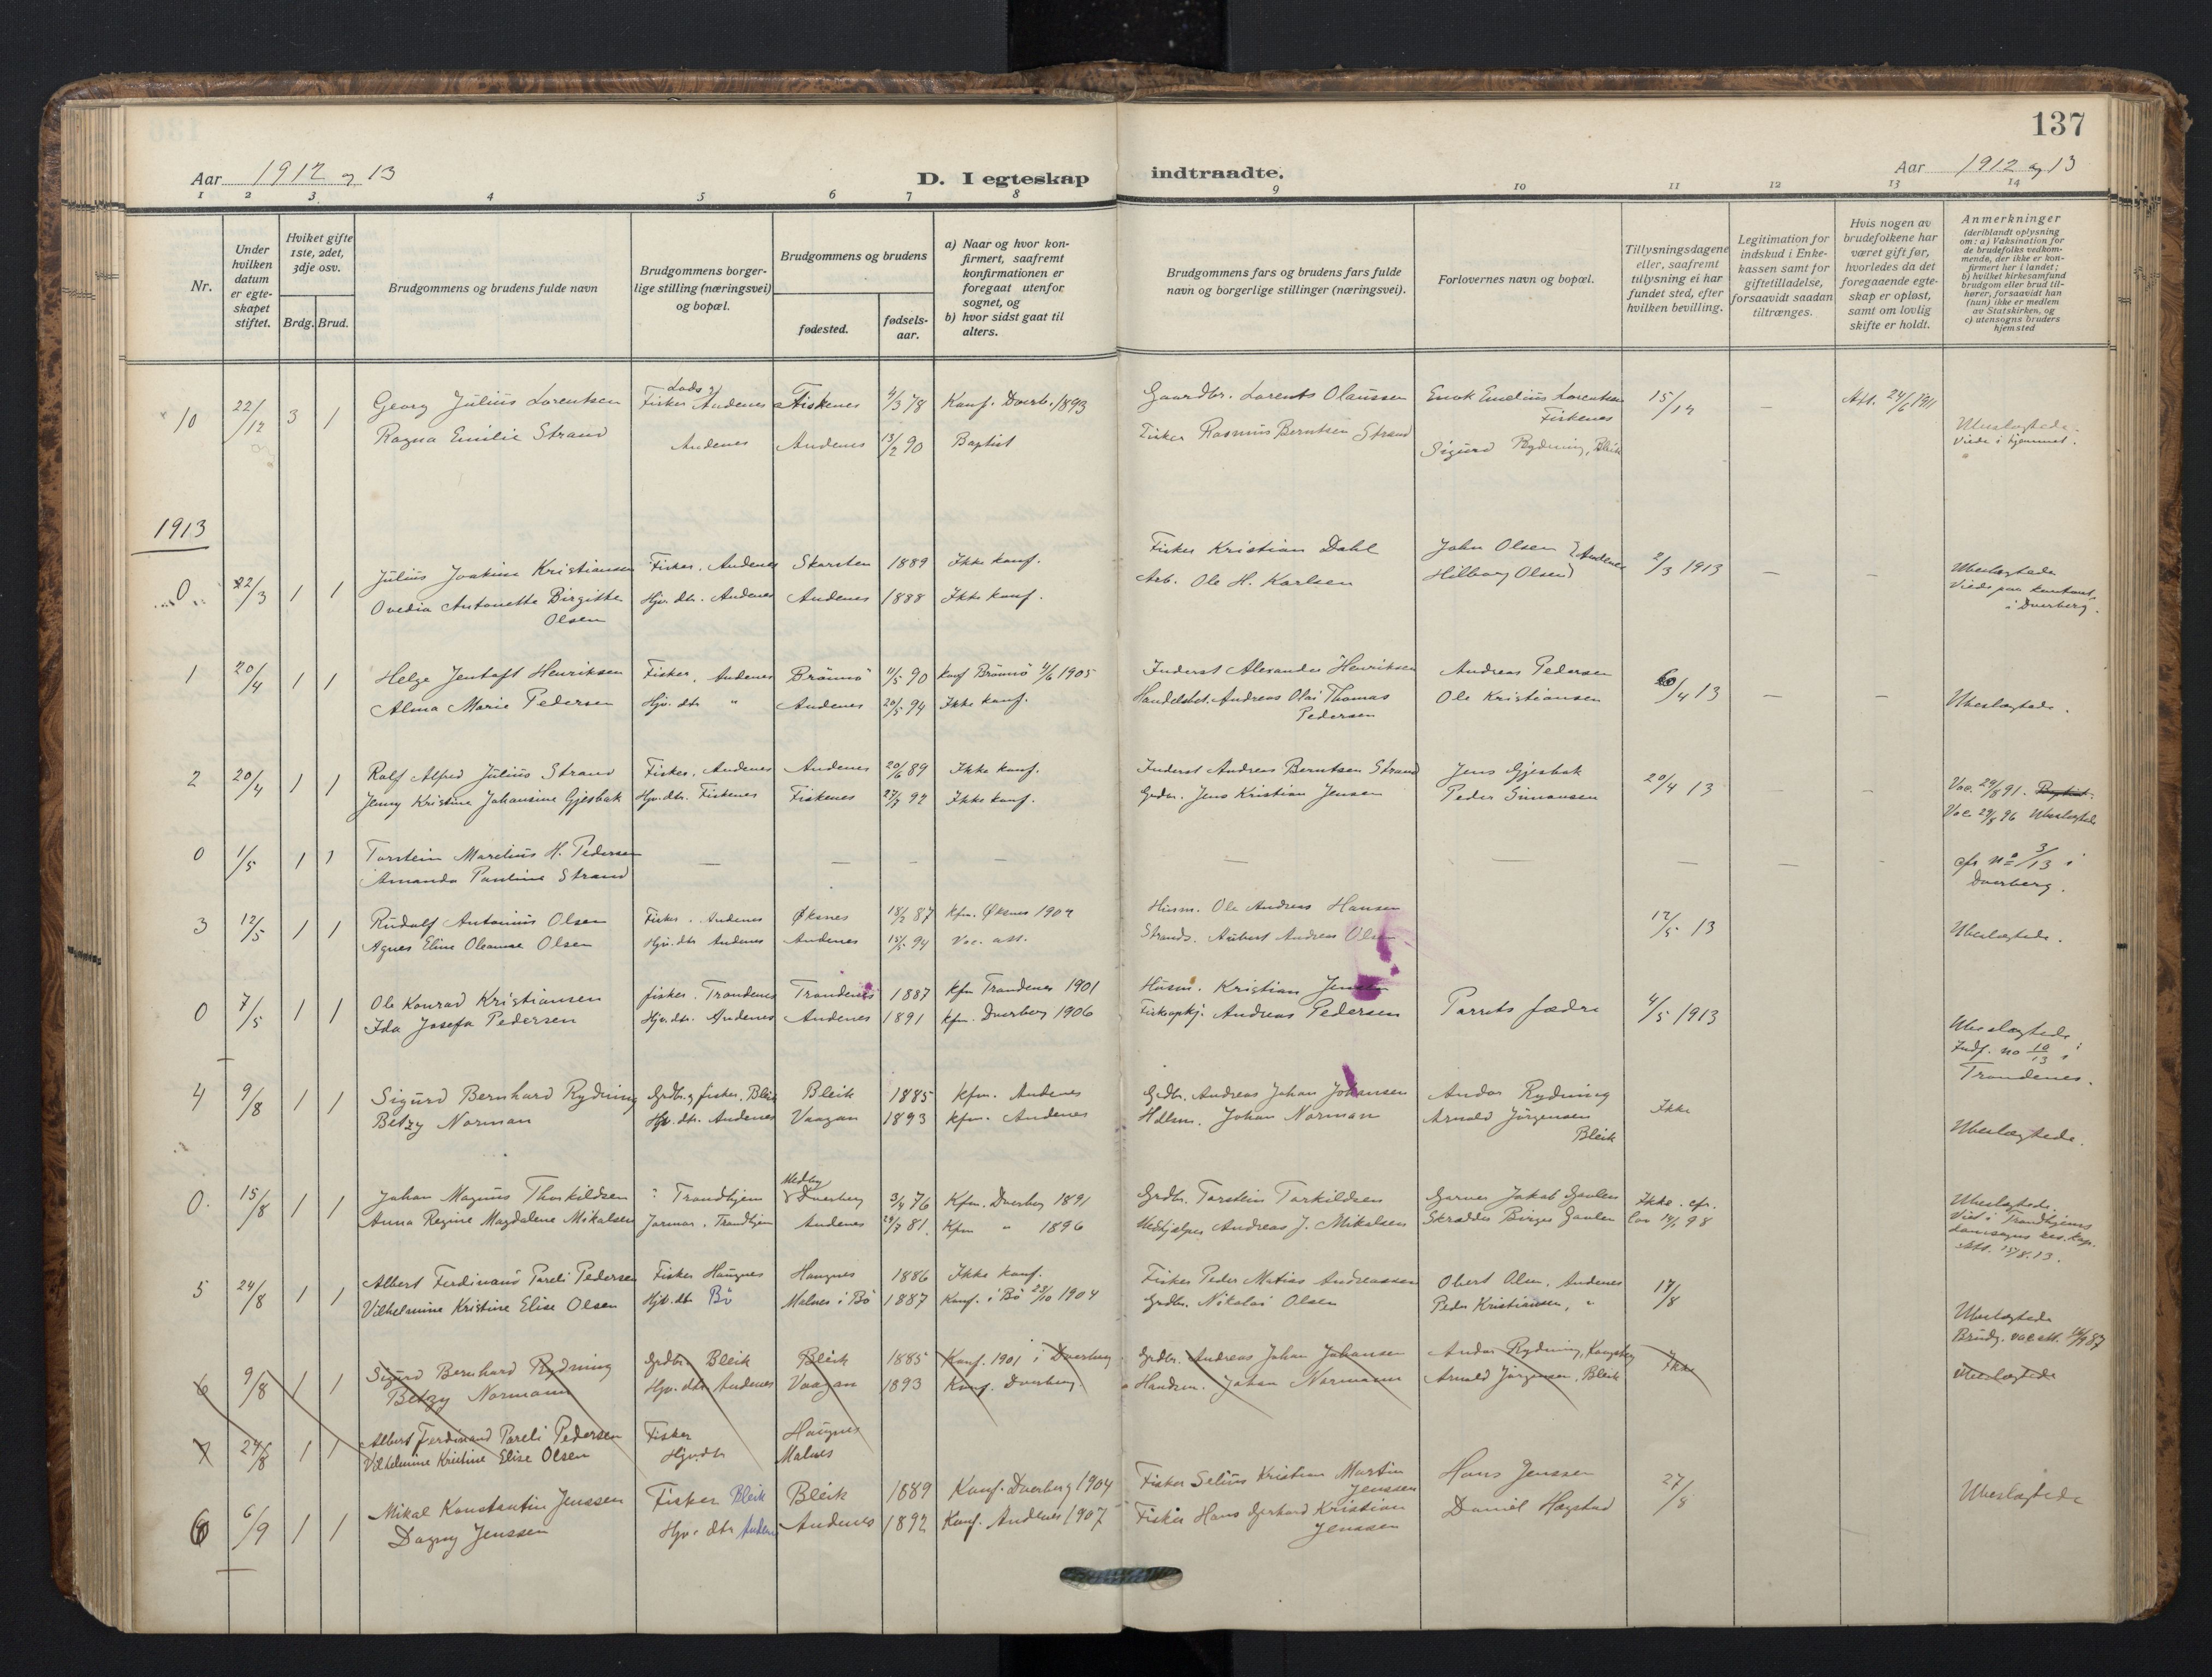 137
Aar 1912 og 13
D. I egteskap indtraadte.
Aar 1912 og 13
1 2 3 4 5 6 7 8 9 10 11 12 13 14
Nr.
Under hvilken datum er egteskapet stiftet.
Hviket gifte 1ste, 2det, 3dje osv.
Brdg. Brud.
Brudgommens og brudens fulde navn
Brudgommens borgerlige stilling (næringsvei) og bopæl.
Brudgommens og brudens
fødested.
fødselsaar.
a) Naar og hvor konfirmert, saafremt konfirmationen er foregaat utenfor sognet, og
b) hvor sidst gaat til alters.
Brudgommens fars og brudens fars fulde navn og borgerlige stillinger (næringsvei).
Forlovernes navn og bopæl.
Tillysningsdagene eller, saafremt tillysning ei har fundet sted, efter hvilken bevilling.
Legitimation for indskud i Enkekassen samt for giftetilladelse, forsaavidt saadan tiltrænges.
Hvis nogen av brudefolkene har været gift før, hvorledes da det foregaaende egteskap er opløst, samt om lovlig skifte er holdt.
Anmerkninger (deriblandt oplysning om: a) Vaksination for de brudefolks vedkommende, der ikke er konfirmert her i landet; b) hvilket kirkesamfund brudgom eller brud tilhører, forsaavidt han (hun) ikke er medlem av Statskirken, og c) utensogns bruders hjemsted
10 22/12 3 1 Georg Julius Lorentsen Lods og Fisker Andenes Fiskenes 4/3 78 Konf. Dverb. 1893 Gaardbr. Lorents Olaussen Enok Emelius Lorentsen Fiskenes 15/12 — Att. 24/6 1911 Ubeslægtede.
Ragna Emilie Strand Andenes Andenes 13/2 90 Baptist Fisker Rasmus Berntsen Strand Sigurd Rydning, Bleik Viede i hjemmet.
1913
0 22/3 1 1 Julius Joakim Kristiansen Fisker, Andenes Skarsten 1889 Ikke konf. Fisker Kristian Dahl John Olsen } Andenes 2/3 1913 — — Ubeslægtede
Ovedia Antonette Birgitte Olsen Hjv. dtr. Andenes Andenes 1888 Ikke konf. Arb. Ole H. Karlsen Hilborg Olsen } Viede paa kontoret i Dverberg.
1 20/4 1 1 Helge Jentoft Henriksen Fisker, Andenes Brönnö 11/5 90 Konf Brönnö 4/6 1905 Inderst Alexander Henriksen Andreas Pedersen /4 13 — — Ubeslægtede.
Alma Marie Pedersen Hjv. dtr. " Andenes 20/5 94 Ikke konf. Handelsbet. Andreas Olai Thomas Pedersen Ole Kristiansen
2 20/4 1 1 Rolf Alfred Julius Strand Fisker, Andenes Andenes 20/6 89 Ikke konf. Inderst Andreas Berntsen Strand Jens Gjesbak 20/4 13 — — Vac. 29/8 91. Baptist.
Jenny Kristine Johansine Gjesbak Hjv. dtr. Fiskenes Fiskenes 27/7 92 Ikke konf. Jens Kristian Jensen Peder Simonsen Vac. 29/8 96 Ubeslægtede
0 1/5 1 1 Torstein Marelius H. Pedersen — — — — — — — — — cfr no 3/13 i
Amanda Pauline Strand Dverberg.
3 12/5 1 1 Rudolf Antonius Olsen Fisker, Andenes Øksnes 18/3 87 kfm. Øksnes 1904 Husm. Ole Andreas Hansen 12/5 13 Ubeslægtede.
Agnes Eline Oleanna Olsen Hjv. dtr Andenes Andenes 15/5 94 Vac. att. Strands. Aubert Andreas Olsen
0 7/5 1 1 Ole Konrad Kristiansen fisker. Trondenes Trondenes 1887 kfm Trondenes 1901 Husm. Kristian Jensen Parrets fædre 4/5 1913 Ubeslægtede.
Ida Josefa Pedersen Hjv. dtr. Andenes Andenes 1891 kfm. Dverberg 1906 Fiskeopkj. Andreas Pedersen Indf. no 10/13 i Trondenes.
4 9/8 1 1 Sigurd Bernhard Rydning Grdbr. & fisker, Bleik Bleik 1885 kfm. Andenes Grdbr. Andreas Johan Johansen Andor Rydning Ikke Ubeslægtede.
Betzy Norman Hjv. dtr. Andenes Vaagan 1893 kfm. Andenes Hdlsm. Johan Norman Arnold Jörgensen Bleik
0. 15/8 1 1 Johan Magnus Thorkildsen Trondhjem Medby Dverberg 3/4 76 Kfm. Dverberg 1891 Grdbr. Torstein Torkildsen Garver Jakob Gaulen Ikke. cfr. Ubeslægtede.
Anna Regine Magdalene Mikalsen Jormor. Trondhjem Andenes 29/7 81. Kfm " 1896 Medhjælper Andreas J. Mikalsen Skrædder Birger Gaulen Lov 14/ 98 Viet i Trondhjems res. kap. Att. 15/8.13.
5 24/8 1 1 Albert Ferdinand Pareli Pedersen Fisker Haugnes Haugnes 1886 Ikke konf. Fisker Peder Matias Andreassen Obert Olsen, Andenes 17/8 Ubeslægtede
Vilhelmine Kristine Elise Olsen Hjv. dtr Bö Malnes i Bö 1887 Konf. i Bö 23/10 1904 Grdbr. Nikolai Olsen Peder Kristiansen, " Brudg. vac att. 14/9 87
6 9/8 1 1 Sigurd Bernhard Rydning Grdbr. Bleik Bleik 1885 Konf. 1901 i Dverberg Grdbr. Andreas Johan Johansen Andor Rydning, Ikke Ubeslægtede
Betzy Normann Hjv. dtr Andenes Vaagan 1893 Konf. Dverberg. Handsm. Johan Normann Arnold Jörgensen, Bleik
7 24/8 1 1 Albert Ferdinand Pareli Pedersen Fisker Haugnes
Vilhelmine Kristine Elise Olsen Hjv. dtr Malnes
6 6/9 1 1 Mikal Konstantin Jenssen Fisker Bleik Bleik 1889 Konf. Dverberg 1904 Fisker Selius Kristian Martin Jenssen Hans Jenssen 27/8 Ubeslægtede
Dagny Jenssen Hjv. dtr Andenes Andenes 1892 Konf. Andenes 1907 Fisker Hans Gerhard Kristian Jenssen Daniel Hogstad